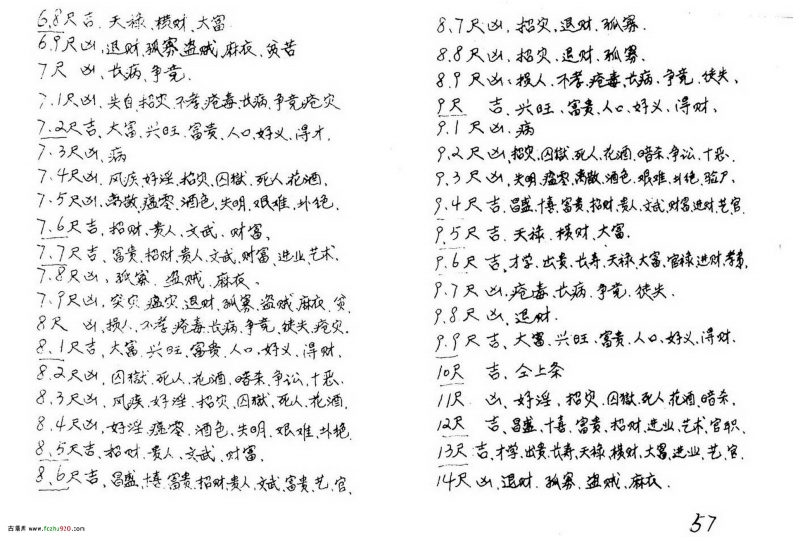 6.8尺吉、天禄、横财、大富
6.9尺凶,退财、孤寡、盗贼、麻衣、贫苦
7尺 凶、长病、争竞、
7.1尺凶、失自、招灾、不孝、疮毒、长病、争竞、疮灾
7.2尺吉、大富、兴旺、富贵、人口、好义、得才、
7.3尺凶、病
7.4尺凶、风疾、好淫、招灾、囚狱、死人、花酒、
7.5尺凶、离散、瘟零、酒色、失明、艰难、外绝、
7.6尺吉、招财、贵人、文武、财富、
7.7尺吉、富贵、招财、贵人、文武、财富、进业、艺术、
7.8尺凶、孤寡、盗贼、麻衣、
7.9尺凶、灾、瘟灾、退财、孤寡、盗贼、麻衣、贫、
8尺 凶、损人、不孝、疮毒、长病、争竞、徒失、疮灾、
8.1尺吉、大富、兴旺、富贵、人口、好义、得财、
8.2尺凶、囚狱、死人、花酒、暗杀、争讼、十恶、
8.3尺凶、风疾、好淫、招灾、囚狱、死人、花酒、
8.4尺凶、好淫、瘟零、酒色、失明、艰难、外绝、
8.5尺吉、招财、贵人、文武、财富、
8.6尺吉、昌盛、十喜、富贵、招财、贵人、文武、富贵、艺、官、
8.7尺凶、招灾、退财、孤寡、
8.8尺凶、招灾、退财、孤寡、
8.9尺凶、损人、不孝、疮毒、长病、争竞、徒失、
9尺 吉、兴旺、富贵、人口、好义、得财、
9.1尺凶、病
9.2尺凶、招灾、囚狱、死人、花酒、暗杀、争讼、十恶、
9.3尺凶、失明、瘟零、离散、酒色、艰难、外绝、
9.4尺吉、昌盛、十喜、富贵、招财、贵人、文武、财富、进财、艺、官、
9.5尺吉、天禄、横财、大富、
9.6尺吉、才学、出贵、长寿、天禄、大富、官禄、进财、
9.7尺凶、疮毒、长病、争竞、徒失、
9.8尺凶、退财、
9.9尺吉、大富、兴旺、富贵、人口、好义、得财、
10尺 吉、仝上条
11尺 凶、好淫、招灾、囚狱、死人、花酒、暗杀、
12尺 吉、昌盛、十喜、富贵、招财、进业、艺术、官职、
13尺 吉、才学、出贵、长寿、天禄、横财、大富、进业、艺、官
14尺 凶、退财、孤寡、盗贼、麻衣、
57
www.fczhu920.com